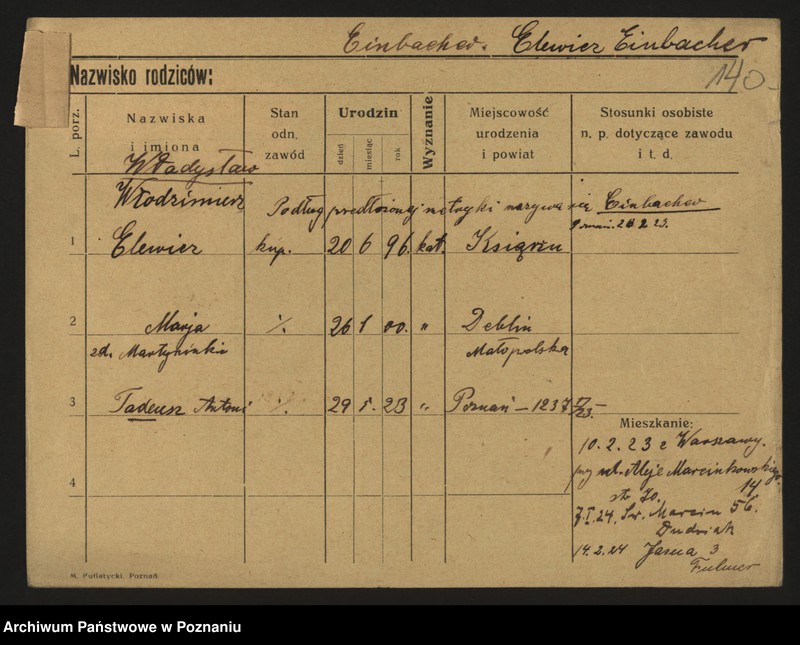 Einbacher. Elewicz Einbacher
Nazwisko rodziców:
140
L. porz.
Nazwiska
i imiona
Stan
odn.
zawód
Urodzin
dzień
miesiąc
rok
Wyznanie
Miejscowość
urodzenia
i powiat
Stosunki osobiste
n. p. dotyczące zawodu
i t. d.
Władysław
Włodzimierz
Podług przedłożonej metryki nazywa się Einbacher
1 Elewicz kup. 20 6 96. kat. Książ
2 Marja ·/. 26 1 00. „ Deblin
zd. Małopolska
3 Tadeusz Antoni ·/. 29 5. 23 „ Poznań – 1237
Mieszkanie:
10.2.23 z Warszawy.
4
przy ul. Aleje Marcinkowskiego
14
7.I.24. Św. Marcin 56.
14.2.24 Jasna 3
M. Putiatycki, Poznań
Archiwum Państwowe w Poznaniu